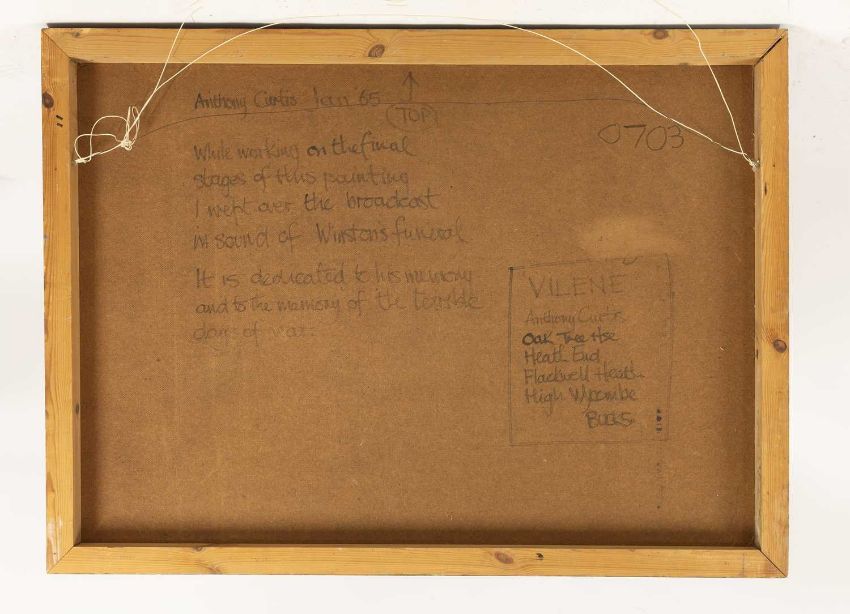 Anthony Curtis Jan '65
(TOP)
0703
While working on the final
stages of this painting
I wept over the broadcast
in sound of Winston's funeral
It is dedicated to his memory
and to the memory of the terrible
days of war.
VILENE
Anthony Curtis
Oak Tree Hse
Heath End
Flackwell Heath
High Wycombe
BUCKS